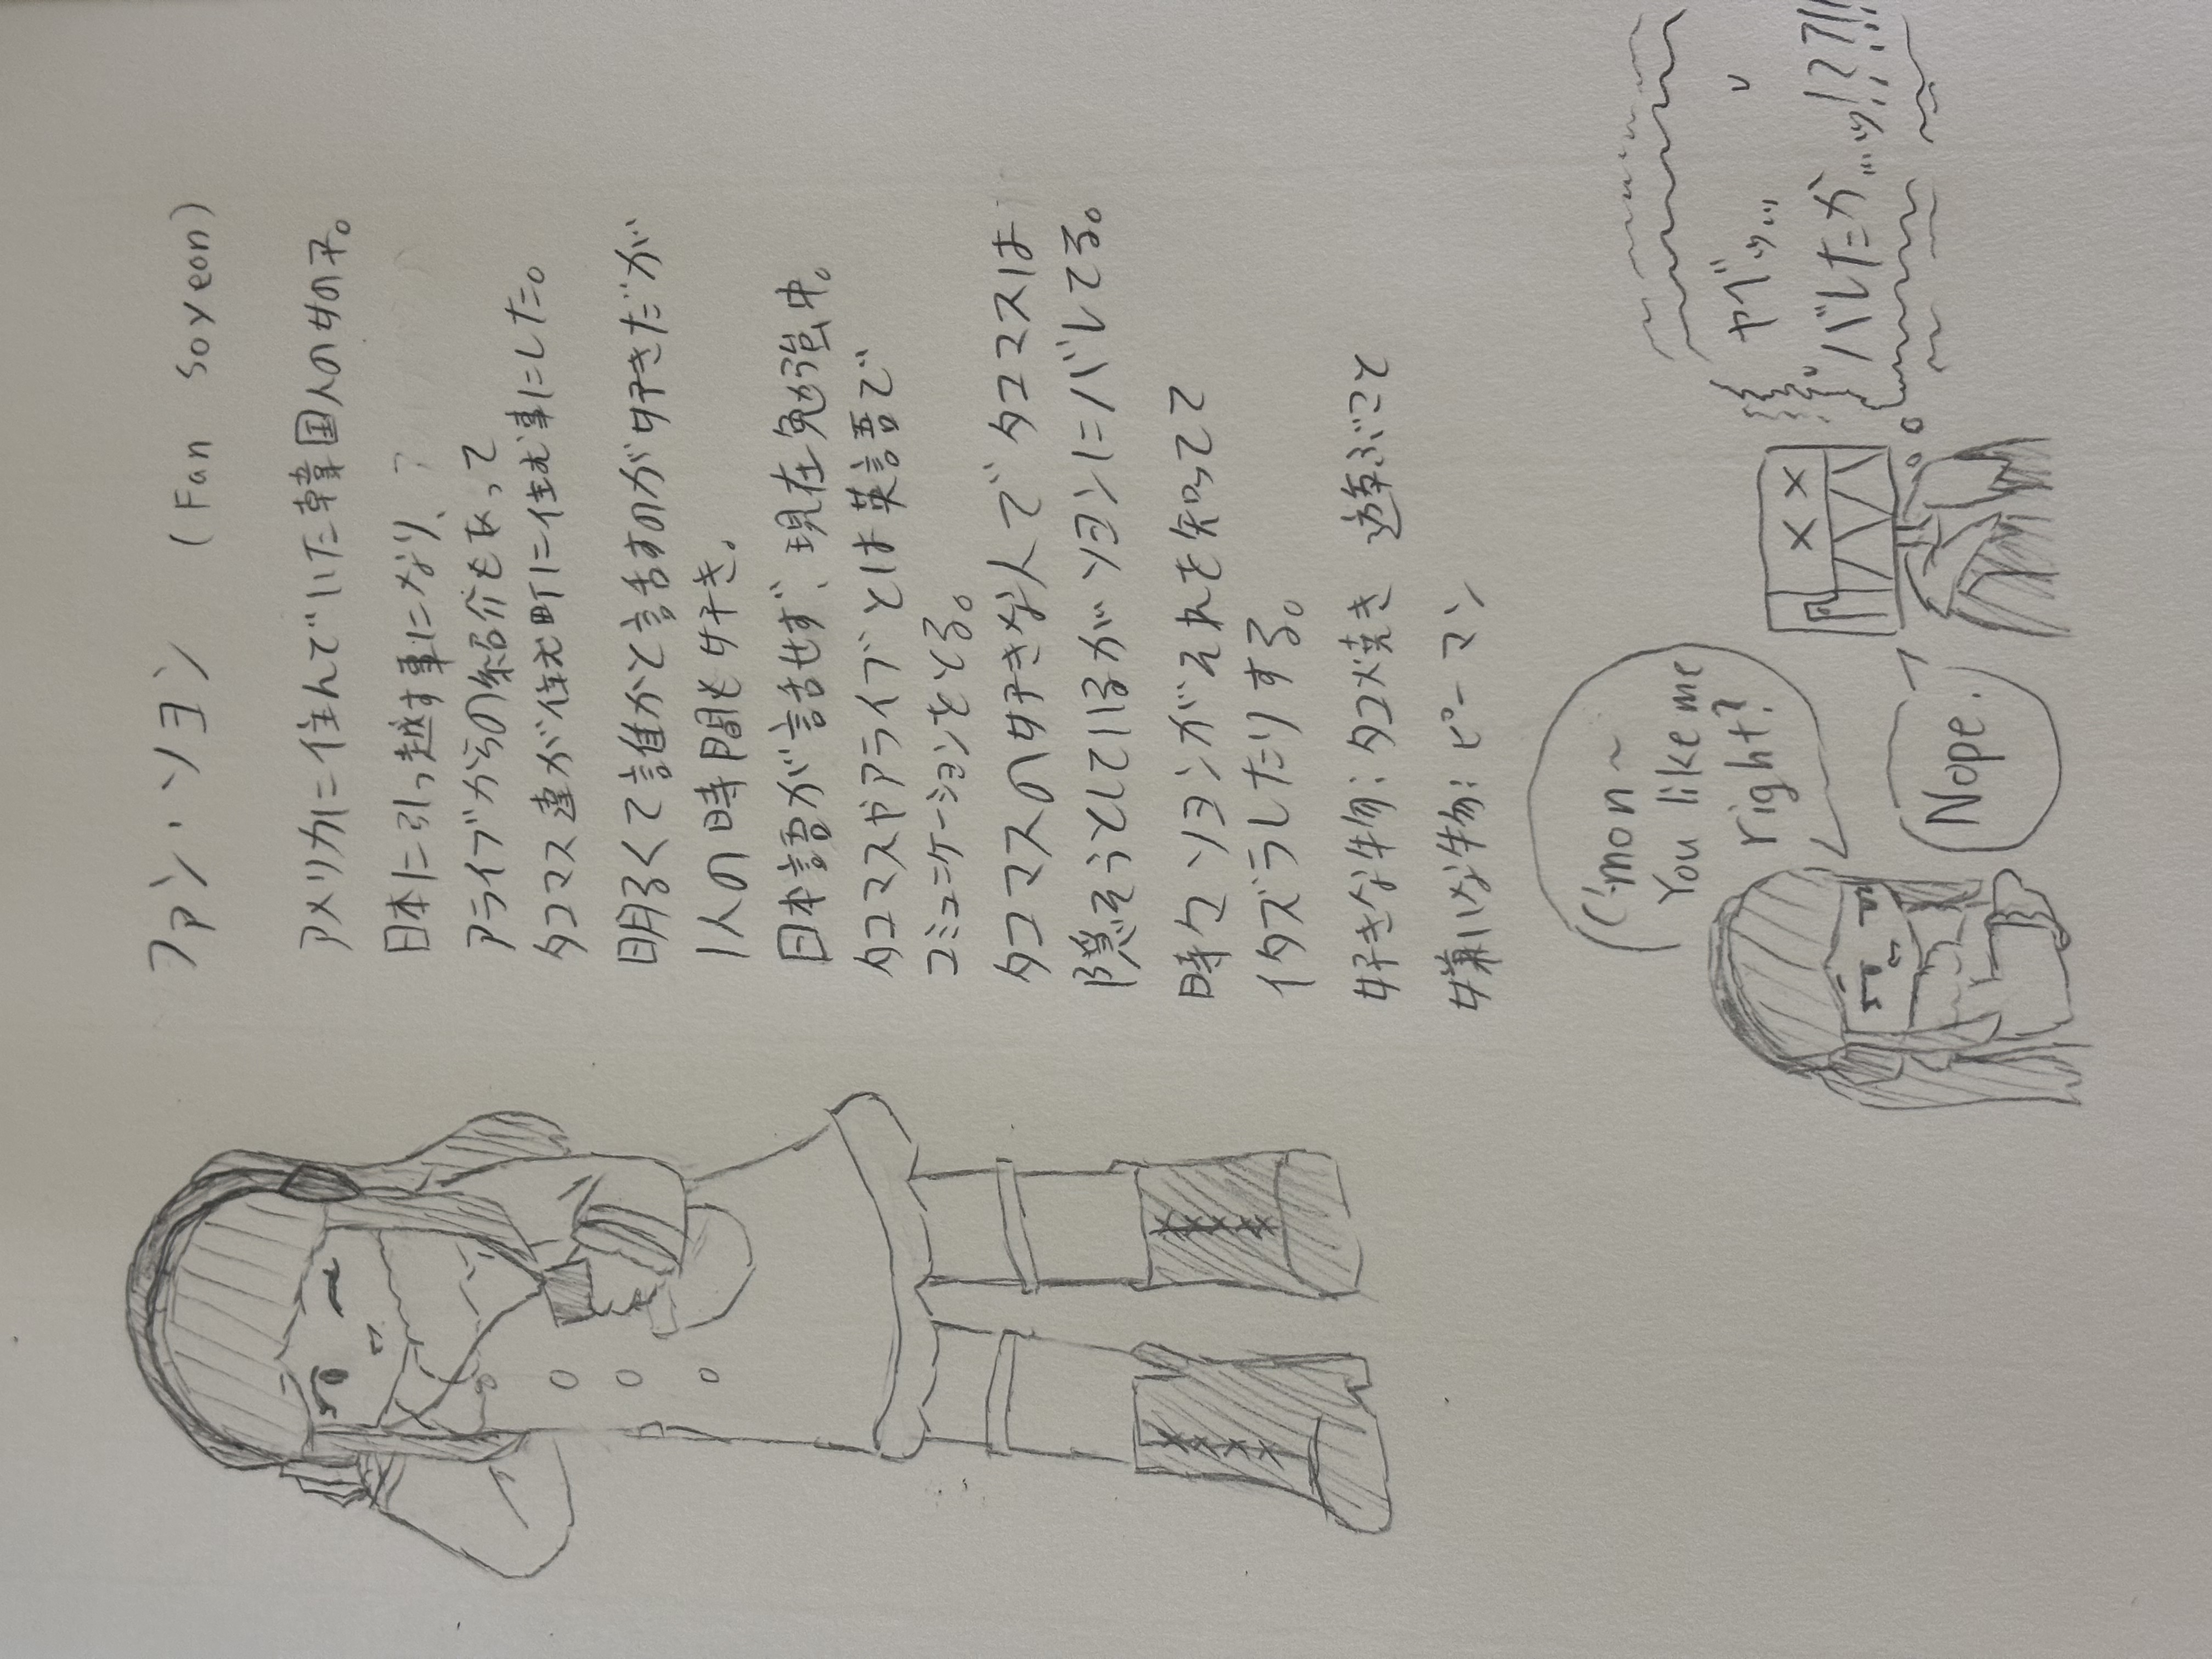 ファン・ソヨン (Fan Soyeon)
アメリカに住んでいた韓国人の女の子。
日本に引っ越す事になり、
アライブからの紹介もあって
タコマス達が住む町に住む事にした。
明るくて誰かと話すのが好きだが
1人の時間も好き。
日本語が話せず、現在勉強中。
タコマスやアライブとは英語で
コミュニケーションをとる。
タコマスの好きな人でタコマスは
隠そうとしているがソヨンにバレてる。
時々ソヨンがそれを知ってて
イタズラしたりする。
好きな物:タコ焼き 遊ぶこと
嫌いな物:ピーマン
C'mon~
You like me
right?
Nope.
ヤバッ…
バレたか…ッ!?